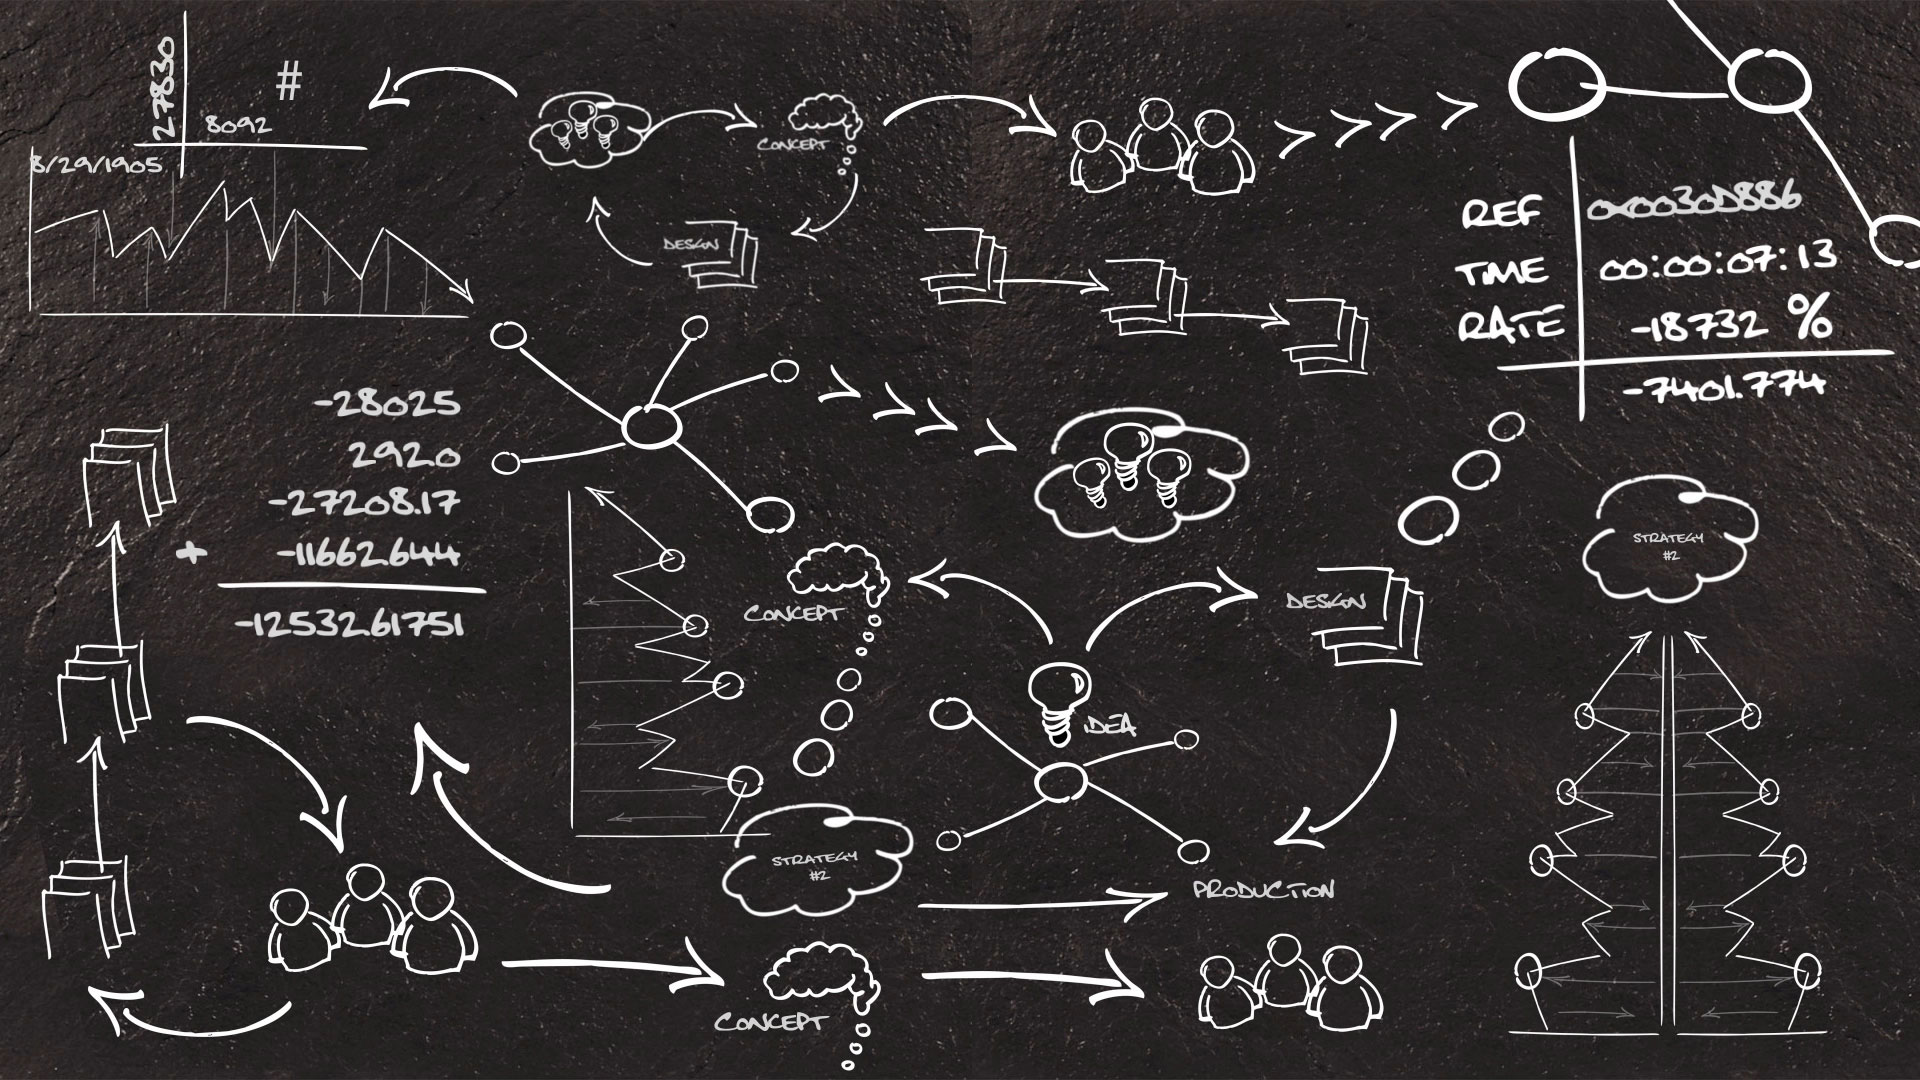 27830
#
8092
8/29/1905
CONCEPT
DESIGN
REF 0x0030D886
TIME 00:00:07:13
RATE -18732 %
-7401.774
-28025
292.0
-27208.17
+ -11662.644
-12532.61751
STRATEGY
#2
CONCEPT
DESIGN
IDEA
STRATEGY
#2
PRODUCTION
CONCEPT